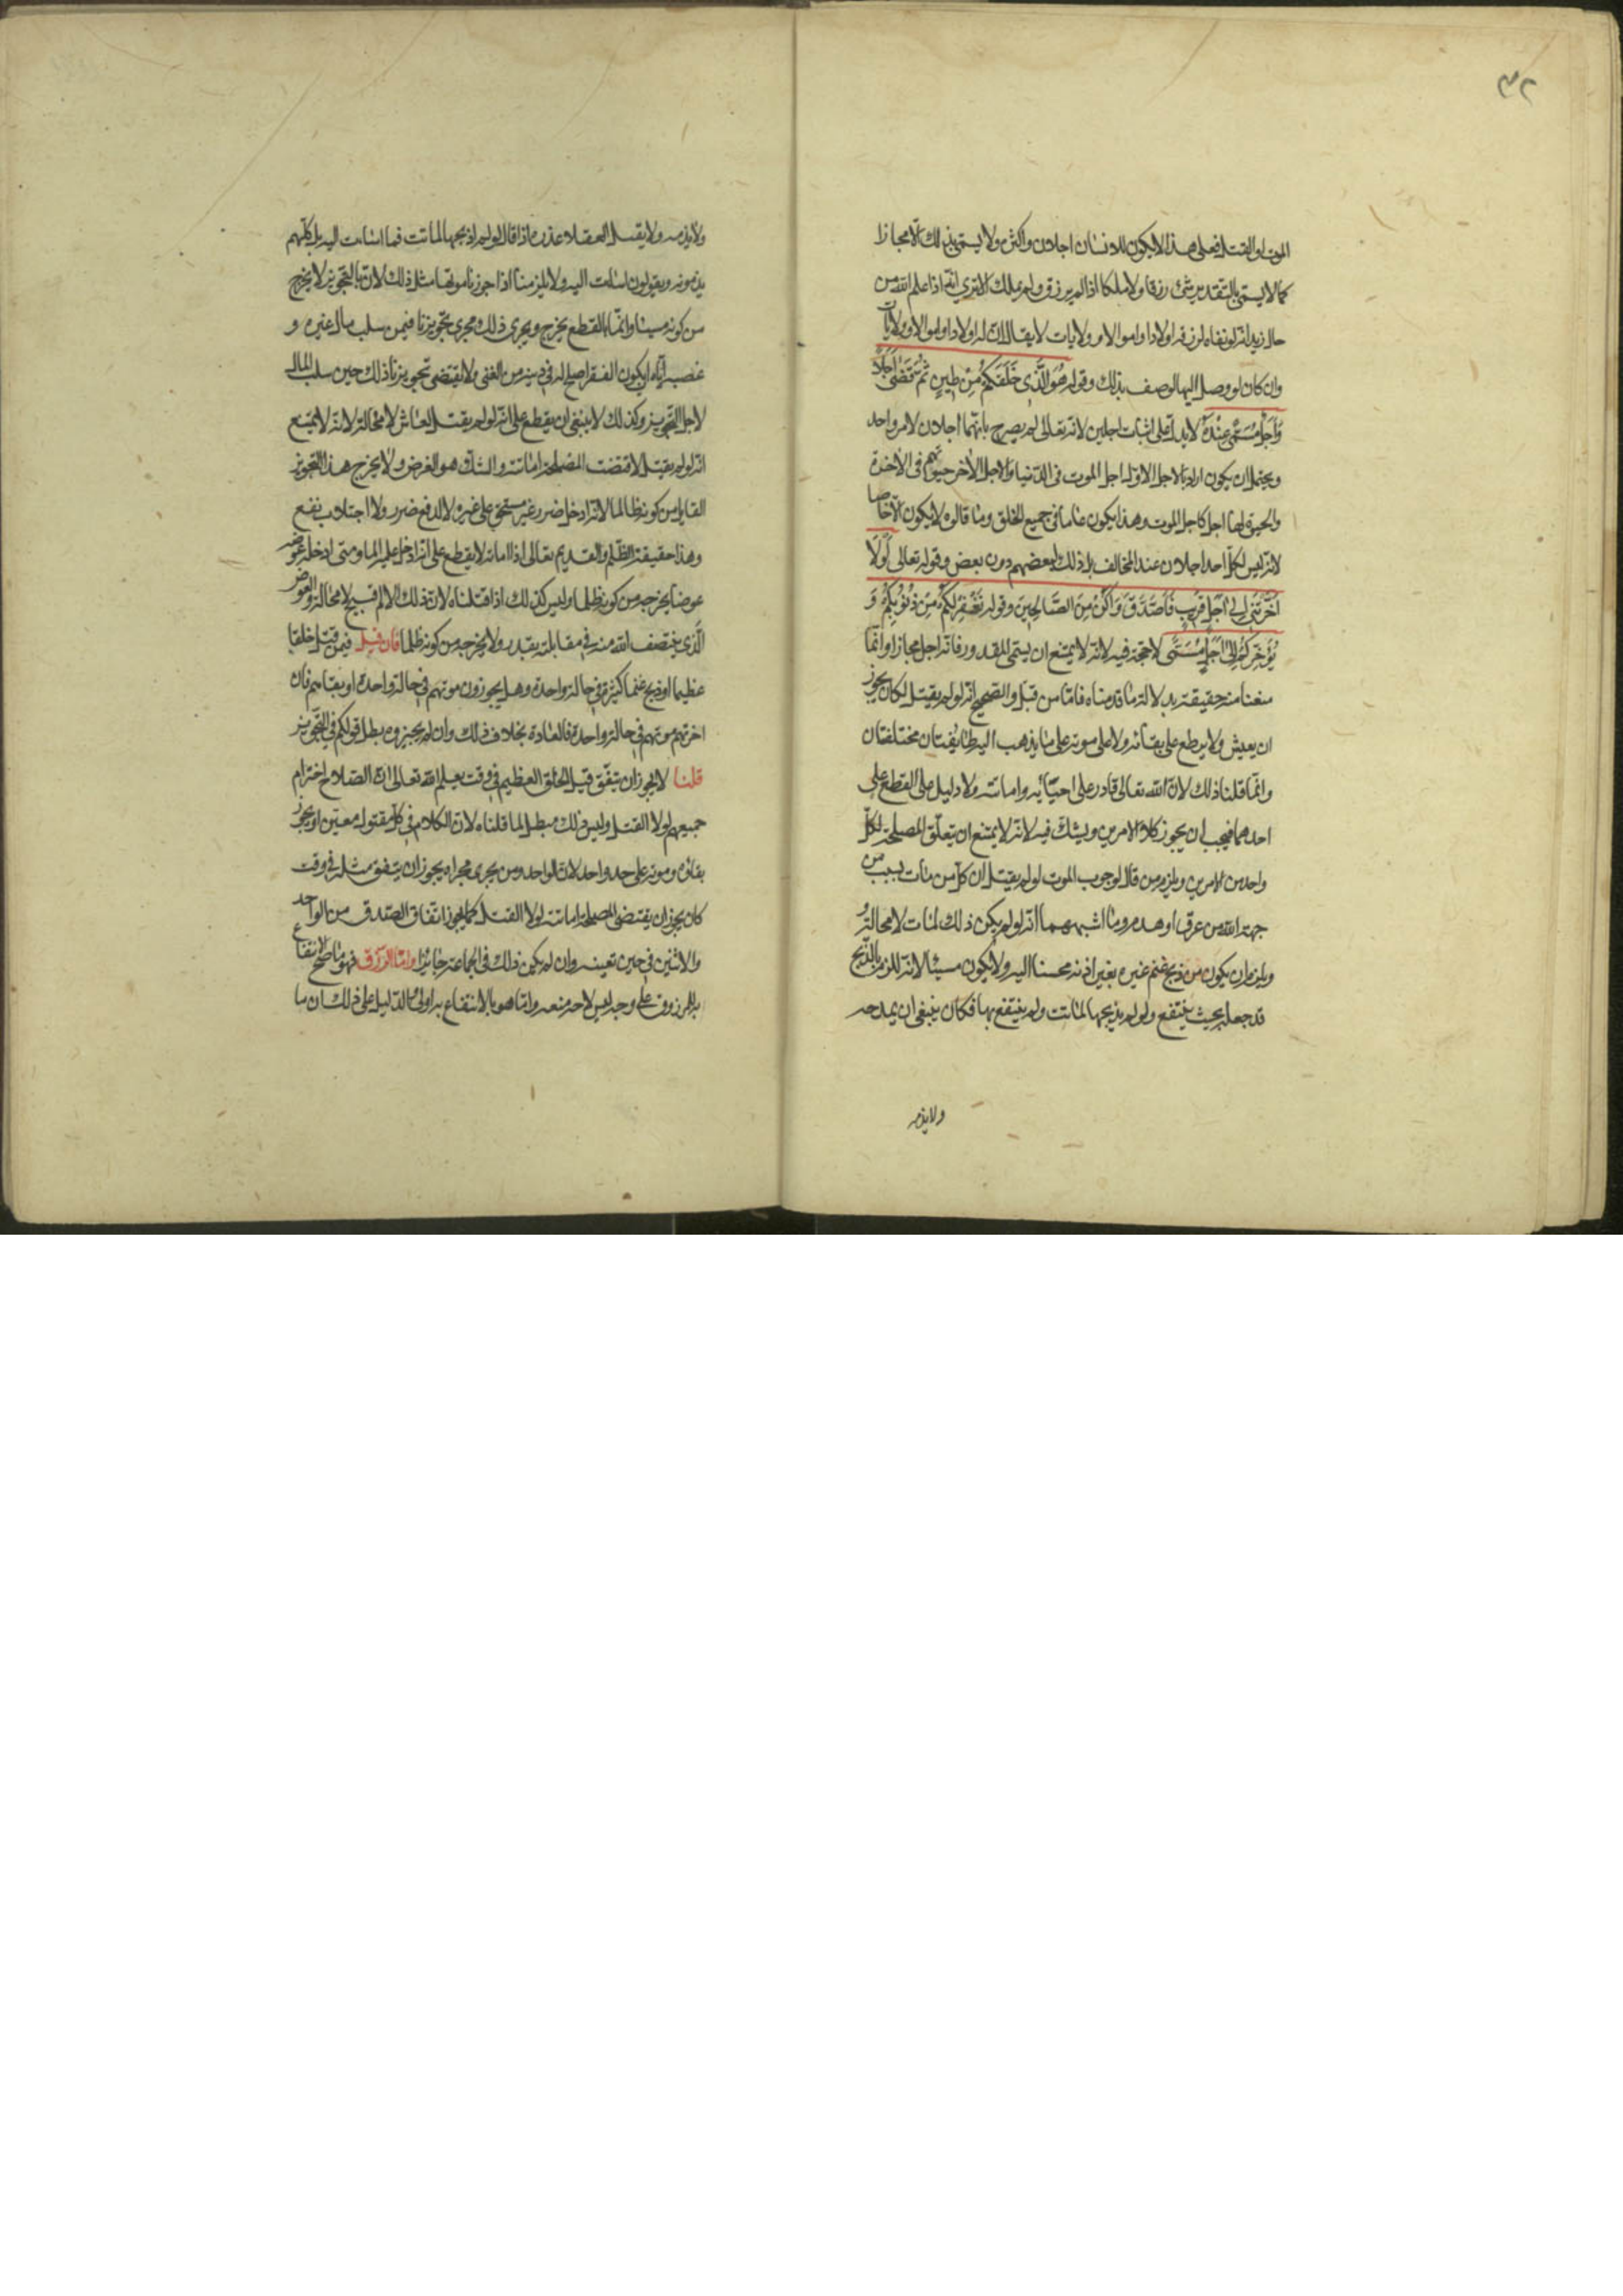 ٣٢
الموت او القتل فعلى هذا لا يكون للانسان اجلان واكثر ولا يسمّى بذلك الّا مجازا
كما لا يسمّى بالتقدير شئ رزقا ولا ملكا اذا لم يرزق ولم يملك الا ترى انّه اذا علم اللّه من
حال زيد انّه لو بقاه لرزقه اولادا واموالا وولايات لا يقال انّ له اولادا واموالا وولايات
وان كان لو وصل اليها لوصف بذلك وقوله هُوَ الَّذي خَلَقَكُمْ مِنْ طينٍ ثُمَّ قَضى اَجَلًا
وَاَجَلٌ مُسَمًّى عِنْدَهُ لا يدلّ على اثبات اجلين لانّه تعالى لم يصرح بانّهما اجلان لامر واحد
ويحتمل ان يكون اراد بالاجل الاوّل اجل الموت فى الدّنيا والاجل الاخر حيوتهم فى الاخرة
والحيوة لها اجل كاجل الموت وهذا يكون عاما فى جميع الخلق وما قالوه لا يكون الّا خاصا
لانّه ليس لكلّ احد اجلان عند المخالف بل ذلك لبعضهم دون بعض وقوله تعالى لَوْلَا
اَخَّرْتَنى اِلى اَجَلٍ قَريبٍ فَاَصَّدَّقَ وَاَكُنْ مِنَ الصَّالِحينَ وقوله يَغْفِرْ لَكُمْ مِنْ ذُنُوبِكُمْ وَ
يُؤَخِّرْكُمْ اِلى اَجَلٍ مُسَمًّى لا حجّة فيه لانّه لا يمتنع ان يسمّى المقدور فانّه اجل مجازا وانّما
منعنا منه حقيقة بدلالة ما قدمناه فامّا من قبل والصّحيح انّه لو لم يقتل لكان يجوز
ان يعيش ولا يقطع على بقائه ولا على موته على ما يذهب اليه طايفتان مختلفتان
وانّما قلنا ذلك لانّ اللّه تعالى قادر على احيائه واماتته ولا دليل على القطع على
احدهما فيجب ان يجوز كلا الامرين ويشكّ فيه لانّه لا يمتنع ان يتعلّق المصلحة لكلّ
واحد من الامرين ويلزم من قال لوجوب الموت لو لم يقتل ان كلّ من مات بسبب من
جهة اللّه من غرق او هدم وما اشبههما انّه لو لم يكن ذلك لمات لا محالة و
ويلزم ان يكون من ذبح غنم غيره بغير اذنه محسنا اليه ولا يكون مسيئا لانّه للزم بالذّبح
قد جعلها بحيث ينتفع ولو لم يذبحها لماتت ولم ينتفع بها فكان ينبغى ان يمدحه
ولا يذمه
ولا يذمه ولا يقبل العقلاء عذره اذا قال لو لم اذبحها لماتت فما اسات اليه بل كلّهم
يذمونه ويقولون اسات اليه ولا يلزمنا اذا جوزنا موتها مثل ذلك لانّ بالتجويز لا يخرج
من كونه مسيئا وانّما بالقطع يخرج ويجرى ذلك مجرى تجويزنا فيمن سلب مال غيره و
غصبه ايّاه ان يكون الفقر اصلح له فى دينه من الغنى ولا يقتضى تجويزنا ذلك حين سلب المال
لاجل التّجويز وكذلك لا ينبغى ان يقطع على انّه لو لم يقتل لعاش لا محالة لانّه لا يمتنع
انّه لو لم يقتل لاقتضت المصلحة اماتته والشكّ هو الفرض ولا يخرج هذا التجويز
القاتل من كونه ظالما لانّه ادخل ضرر غير مستحق على غيره لا لدفع ضرر ولا اجتلاب نفع
وهذا حقيقة الظّلم والقديم تعالى اذا اماته لا يقطع على انّه ادخل عليه الما ومتى ادخله عوضه
عوضا يخرجه من كونه ظلما وليس كذلك اذا قتلناه لانّ ذلك الالم قبيح لا محالة والعوض
الّذى ينتصف اللّه منه فى مقابلته بقدره ولا يخرجه من كونه ظلما فان قيل فيمن قتل خلقا
عظيما او ذبح غنما كثيرة فى حالة واحدة وهل يجوزون موتهم فى حالة واحدة او بقاءهم فان
اخرتم موتهم فى حالة واحدة فالعادة بخلاف ذلك وان لم يجيزوه بطل قولكم فى التّجويز
قلنا لا يجوز ان يتفق قتل الخلق العظيم فى وقت يعلم اللّه تعالى انّ الصّلاح اخترام
جميعهم لولا القتل وليس ذلك مبطل لما قلناه لانّ الكلام فى كلّ مقتول معيّن او يجوز
بقاؤه وموته على حد واحد لانّ الواحد ومن يجرى مجراه يجوز ان يتفق مثله فى وقت
كان يجوز ان يقتضى المصلحة اماتته لولا القتل كما يجوز اتفاق الصّدق من الواحد
والاثنين فى حين تعينه وان لم يكن ذلك فى الجماعة جائزا وامّا الرّزق فهو ما صحّ الانتفاع
به للمرزوق على وجه ليس لاحد منعه وانّما هو بالانتفاع به اولى والدّليل على ذلك ان ما